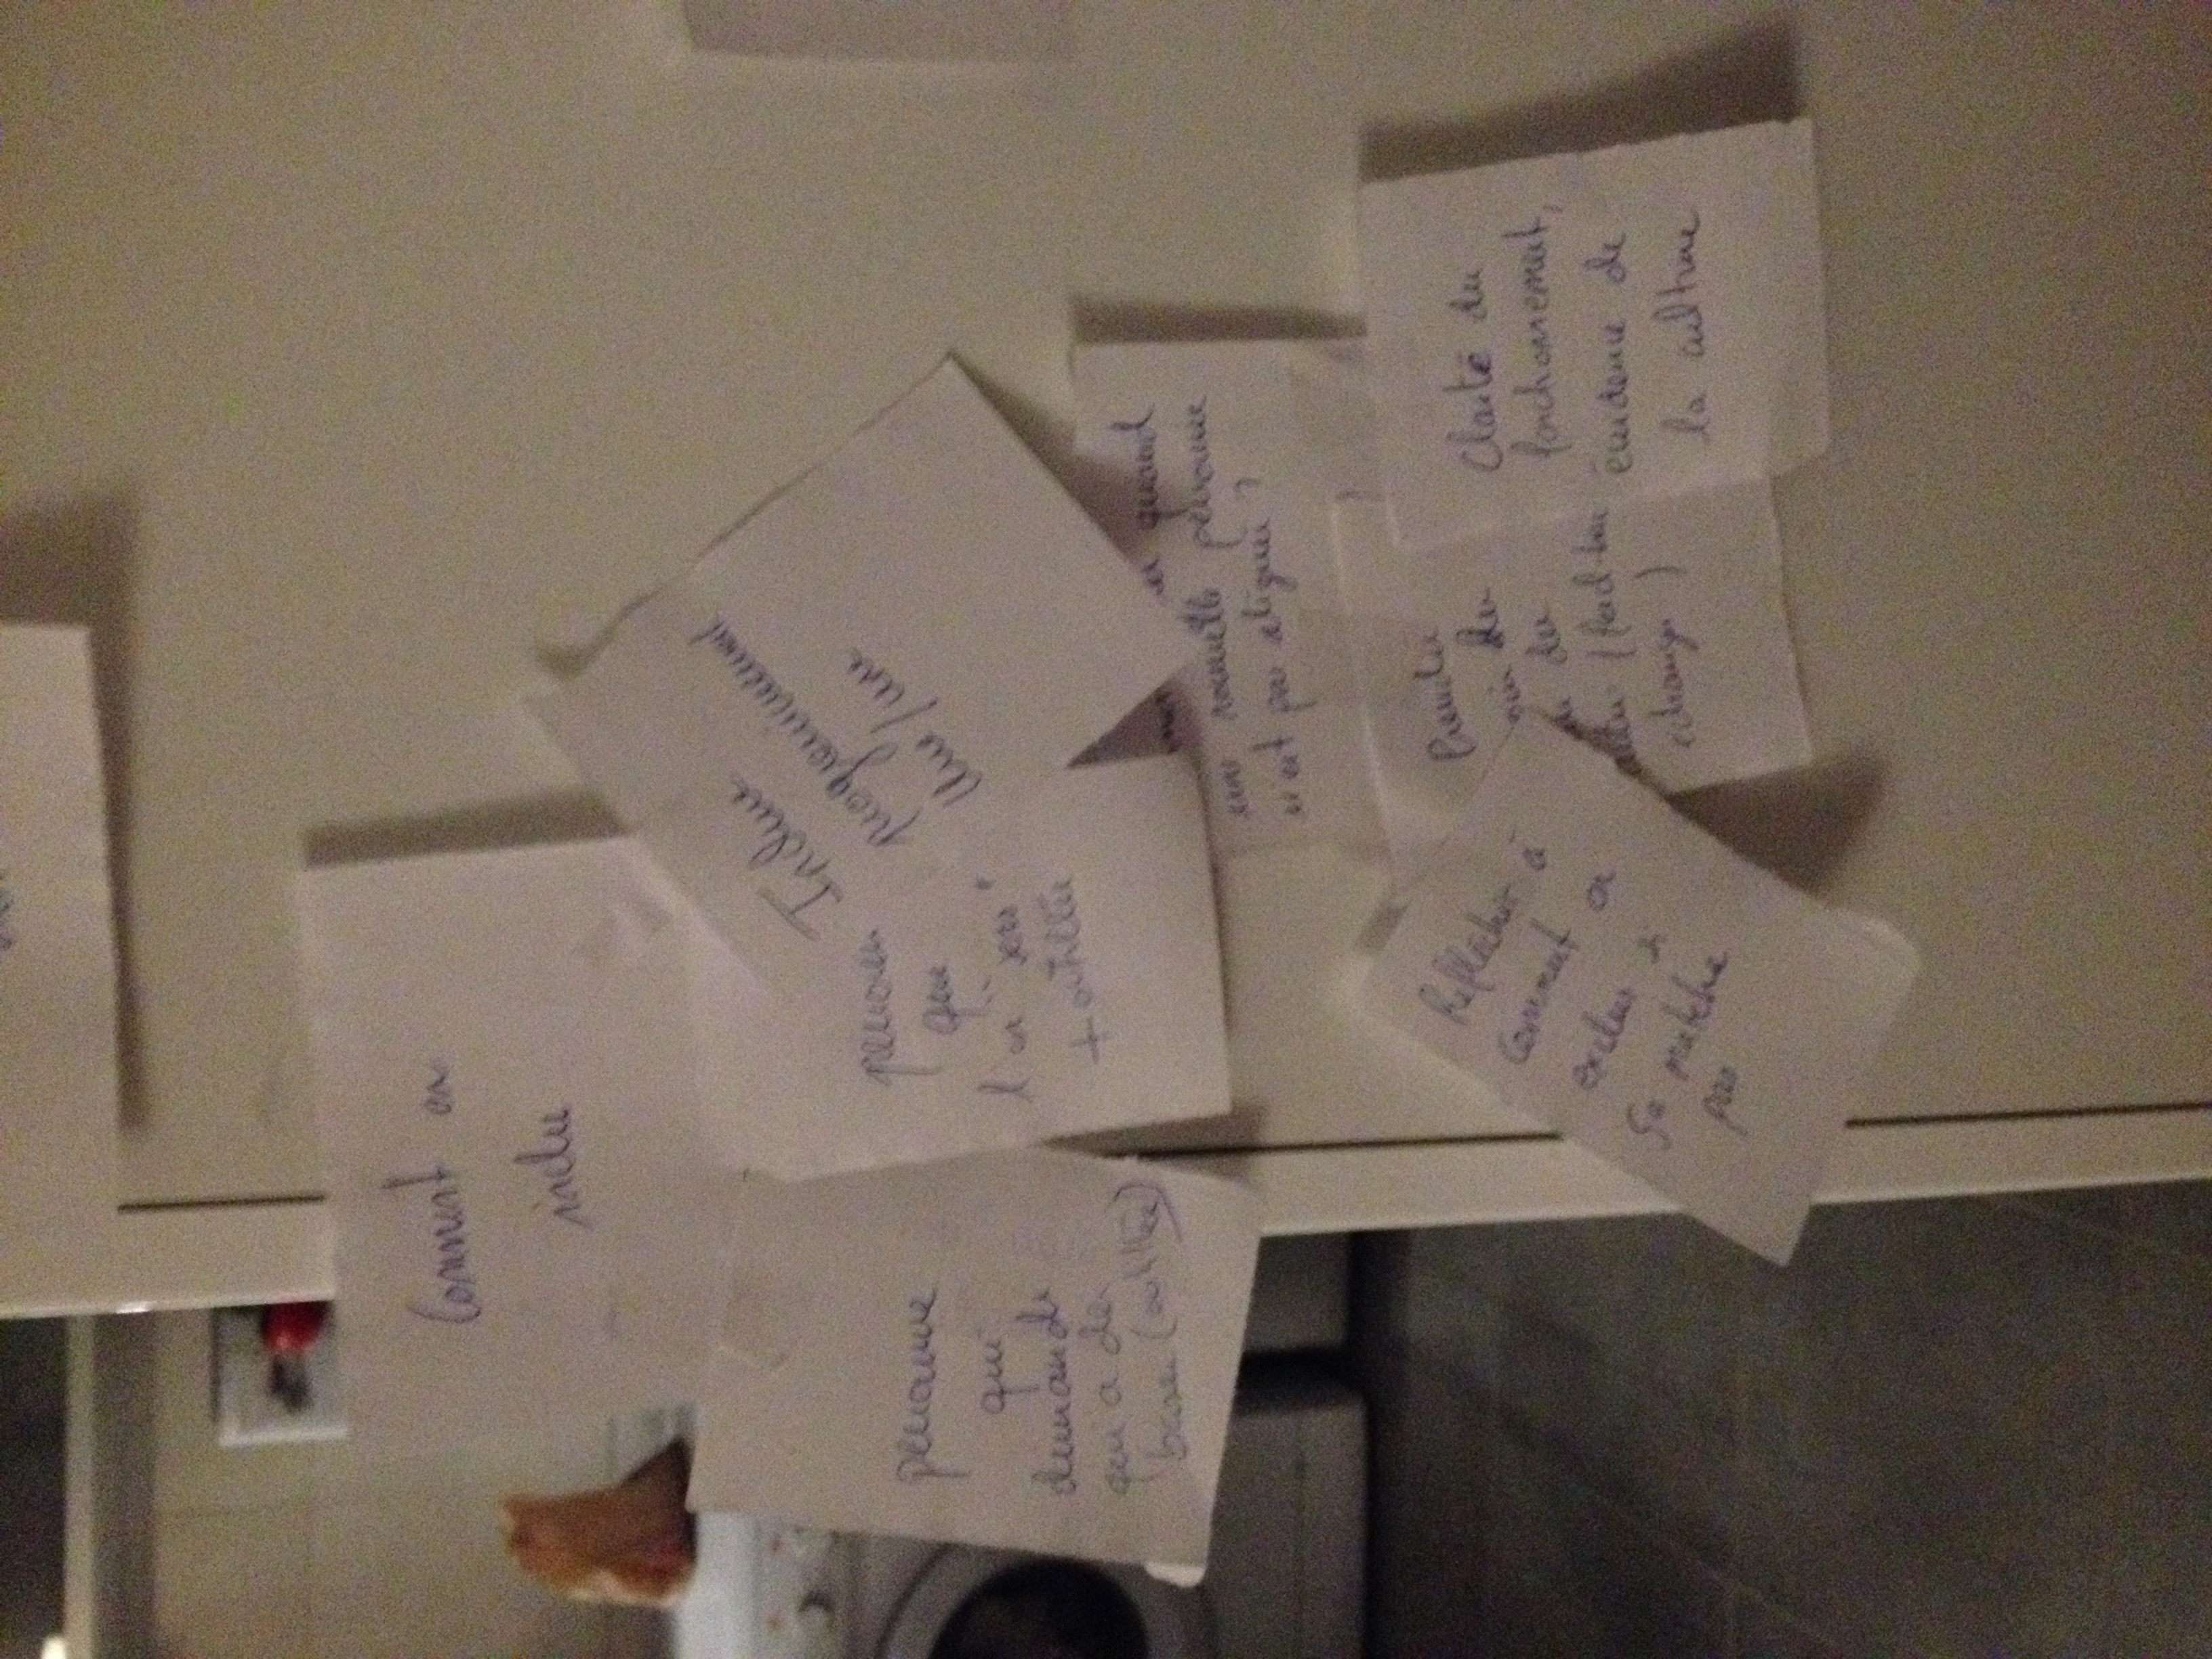 Comment on
inclue
personne
qui
demande
qui a des
bases (outillée)
personne
que
l'on "sens"
+ outillée
Inclure
progressivement
une/une
quand
une nouvelle personne
n'est pas alignée ?
Réfléchir à
comment on
exclue si
ça matche
pas
Prendre
soin des
des
(feed-bac
échanges)
Clarté du
fonctionnement,
évidence de
la culture